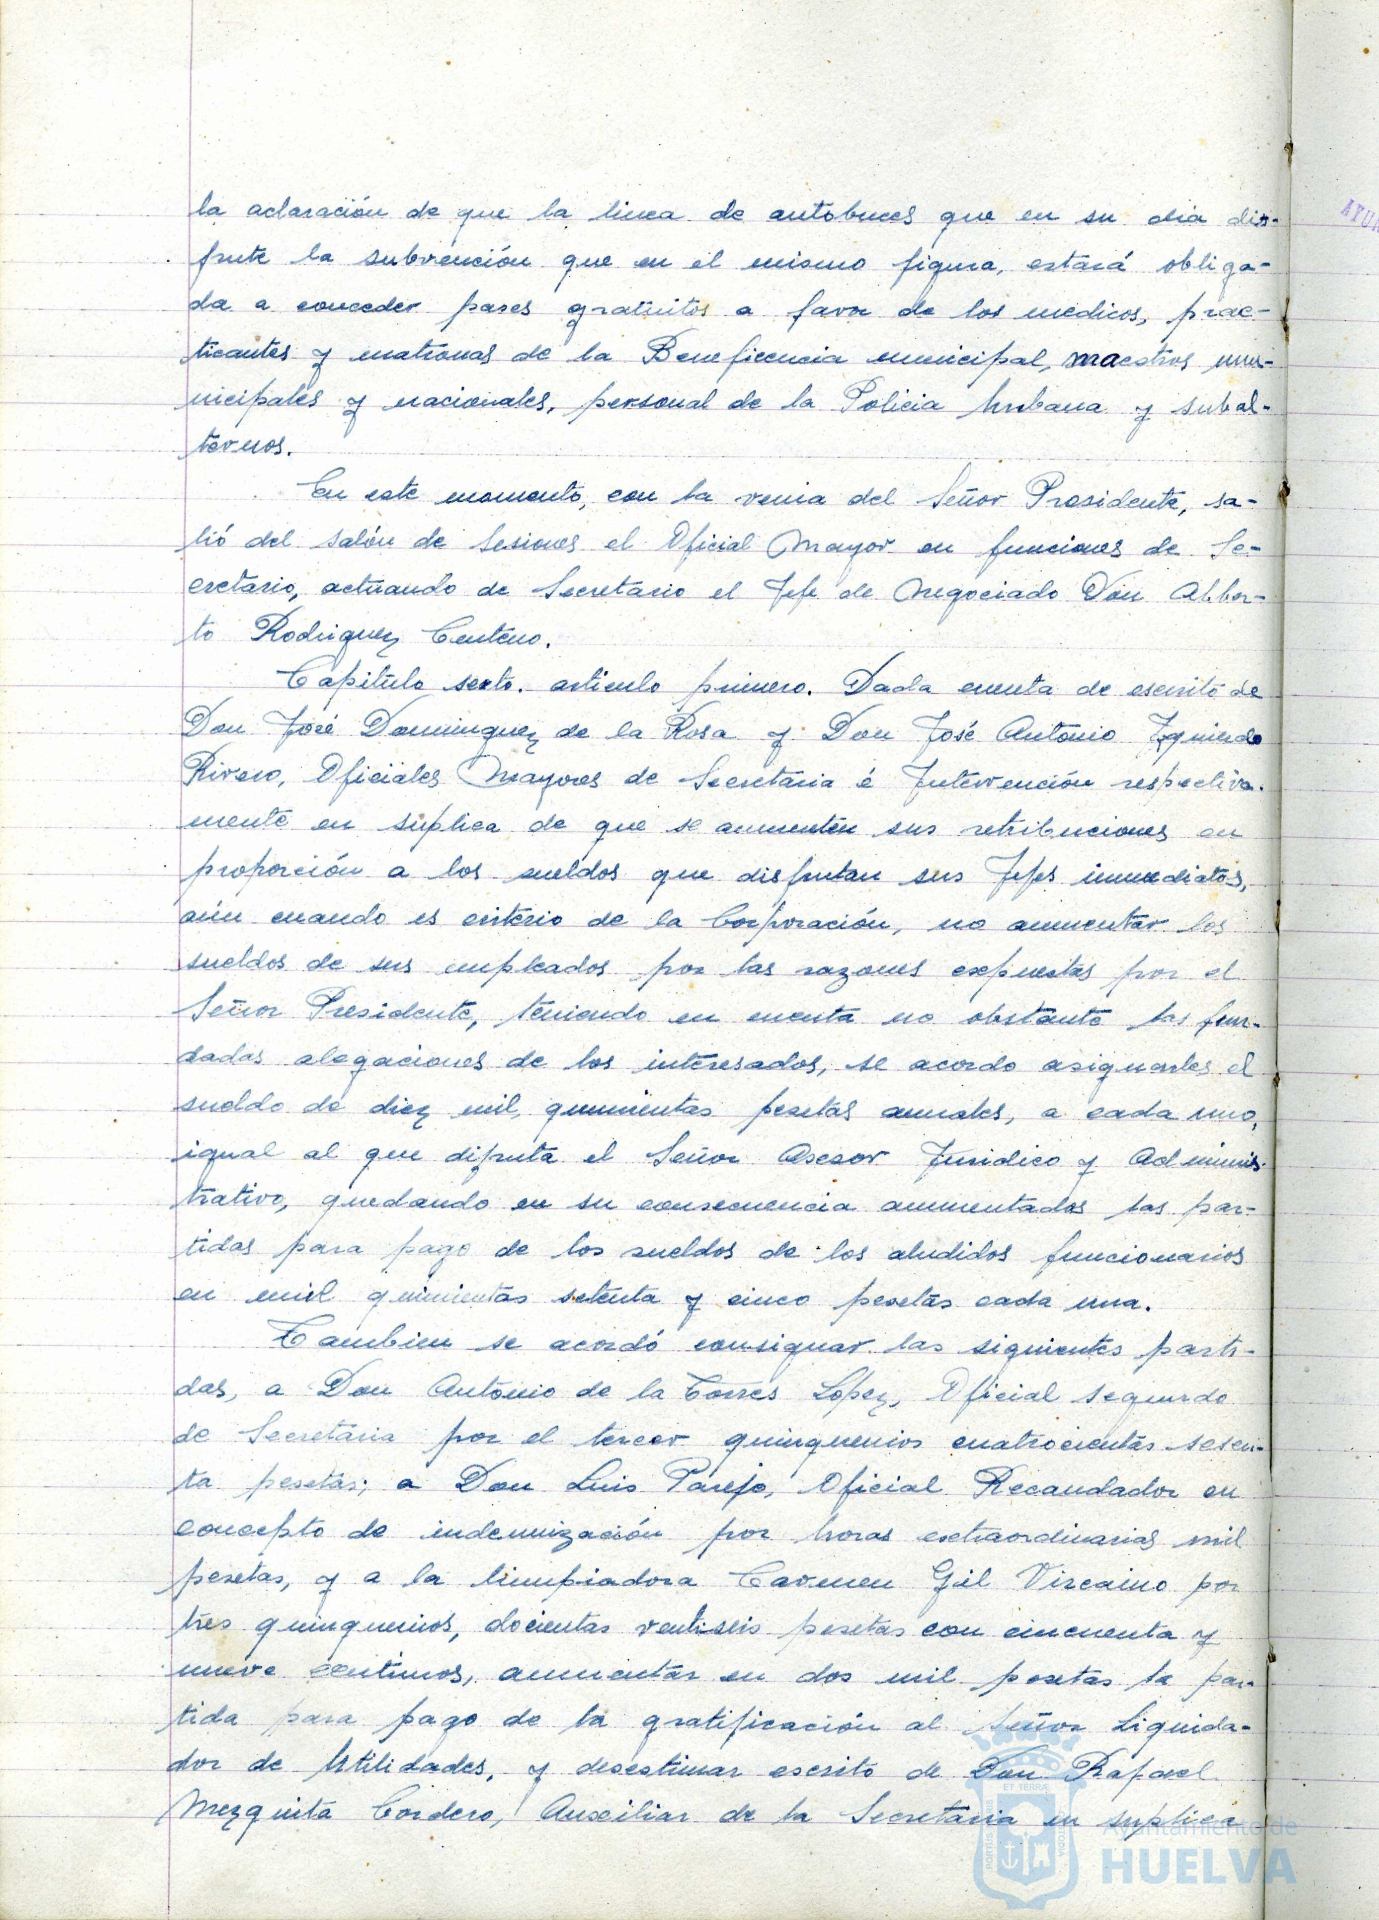 la aclaración de que la linea de autobuces que en su dia dis-
frute la subvención que en el mismo figura, estará obliga-
da a conceder pases gratuitos a favor de los medicos, prac-
ticantes y matronas de la Beneficencia municipal, maestros mu-
nicipales y nacionales, personal de la Policia Urbana y subal-
ternos.
En este momento, con la venia del Señor Presidente, sa-
lió del salón de Sesiones el Oficial Mayor en funciones de Se-
cretario, actuando de Secretario el Jefe de Negociado Don Alber-
to Rodriguez Centeno.
Capitulo sexto. articulo primero. Dada cuenta de escrito de
Don José Dominguez de la Rosa y Don José Antonio Izquierdo
Rivero, Oficiales Mayores de Secretaria é Intervención respectiva-
mente en súplica de que se aumenten sus retribuciones en
proporción a los sueldos que disfrutan sus Jefes inmediatos,
aún cuando es criterio de la Corporación, no aumentar los
sueldos de sus empleados por las razones expuestas por el
Señor Presidente, teniendo en cuenta no obstante las fun-
dadas alegaciones de los interesados, se acordo asignarles el
sueldo de diez mil quinientas pesetas anuales, a cada uno,
igual al que difruta el Señor Asesor Juridico y Adminis-
trativo, quedando en su consecuencia aumentados las par-
tidas para pago de los sueldos de los aludidos funcionarios
en mil quinientas setenta y cinco pesetas cada una.
Tambien se acordó consignar las siguientes parti-
das, a Don Antonio de la Torres Lopez, Oficial segundo
de Secretaria por el tercer quinquenios cuatrocientas sesen-
ta pesetas; a Don Luis Parejo, Oficial Recaudador en
concepto de indemnización por horas extraordinarias mil
pesetas, y a la limpiadora Carmen Gil Viscaino por
tres quinquenios, docientas ventiseis pesetas con cincuenta y
nueve centimos, aumentar en dos mil pesetas la par-
tida para pago de la gratificación al Señor Liquida-
dor de Utilidades, y desestimar escrito de Don Rafael
Mezquita Cordero, Auxiliar de la Secretaria en suplica
AYUN
PORTUS MARIS
ET TERRA
Ayuntamiento de
HUELVA